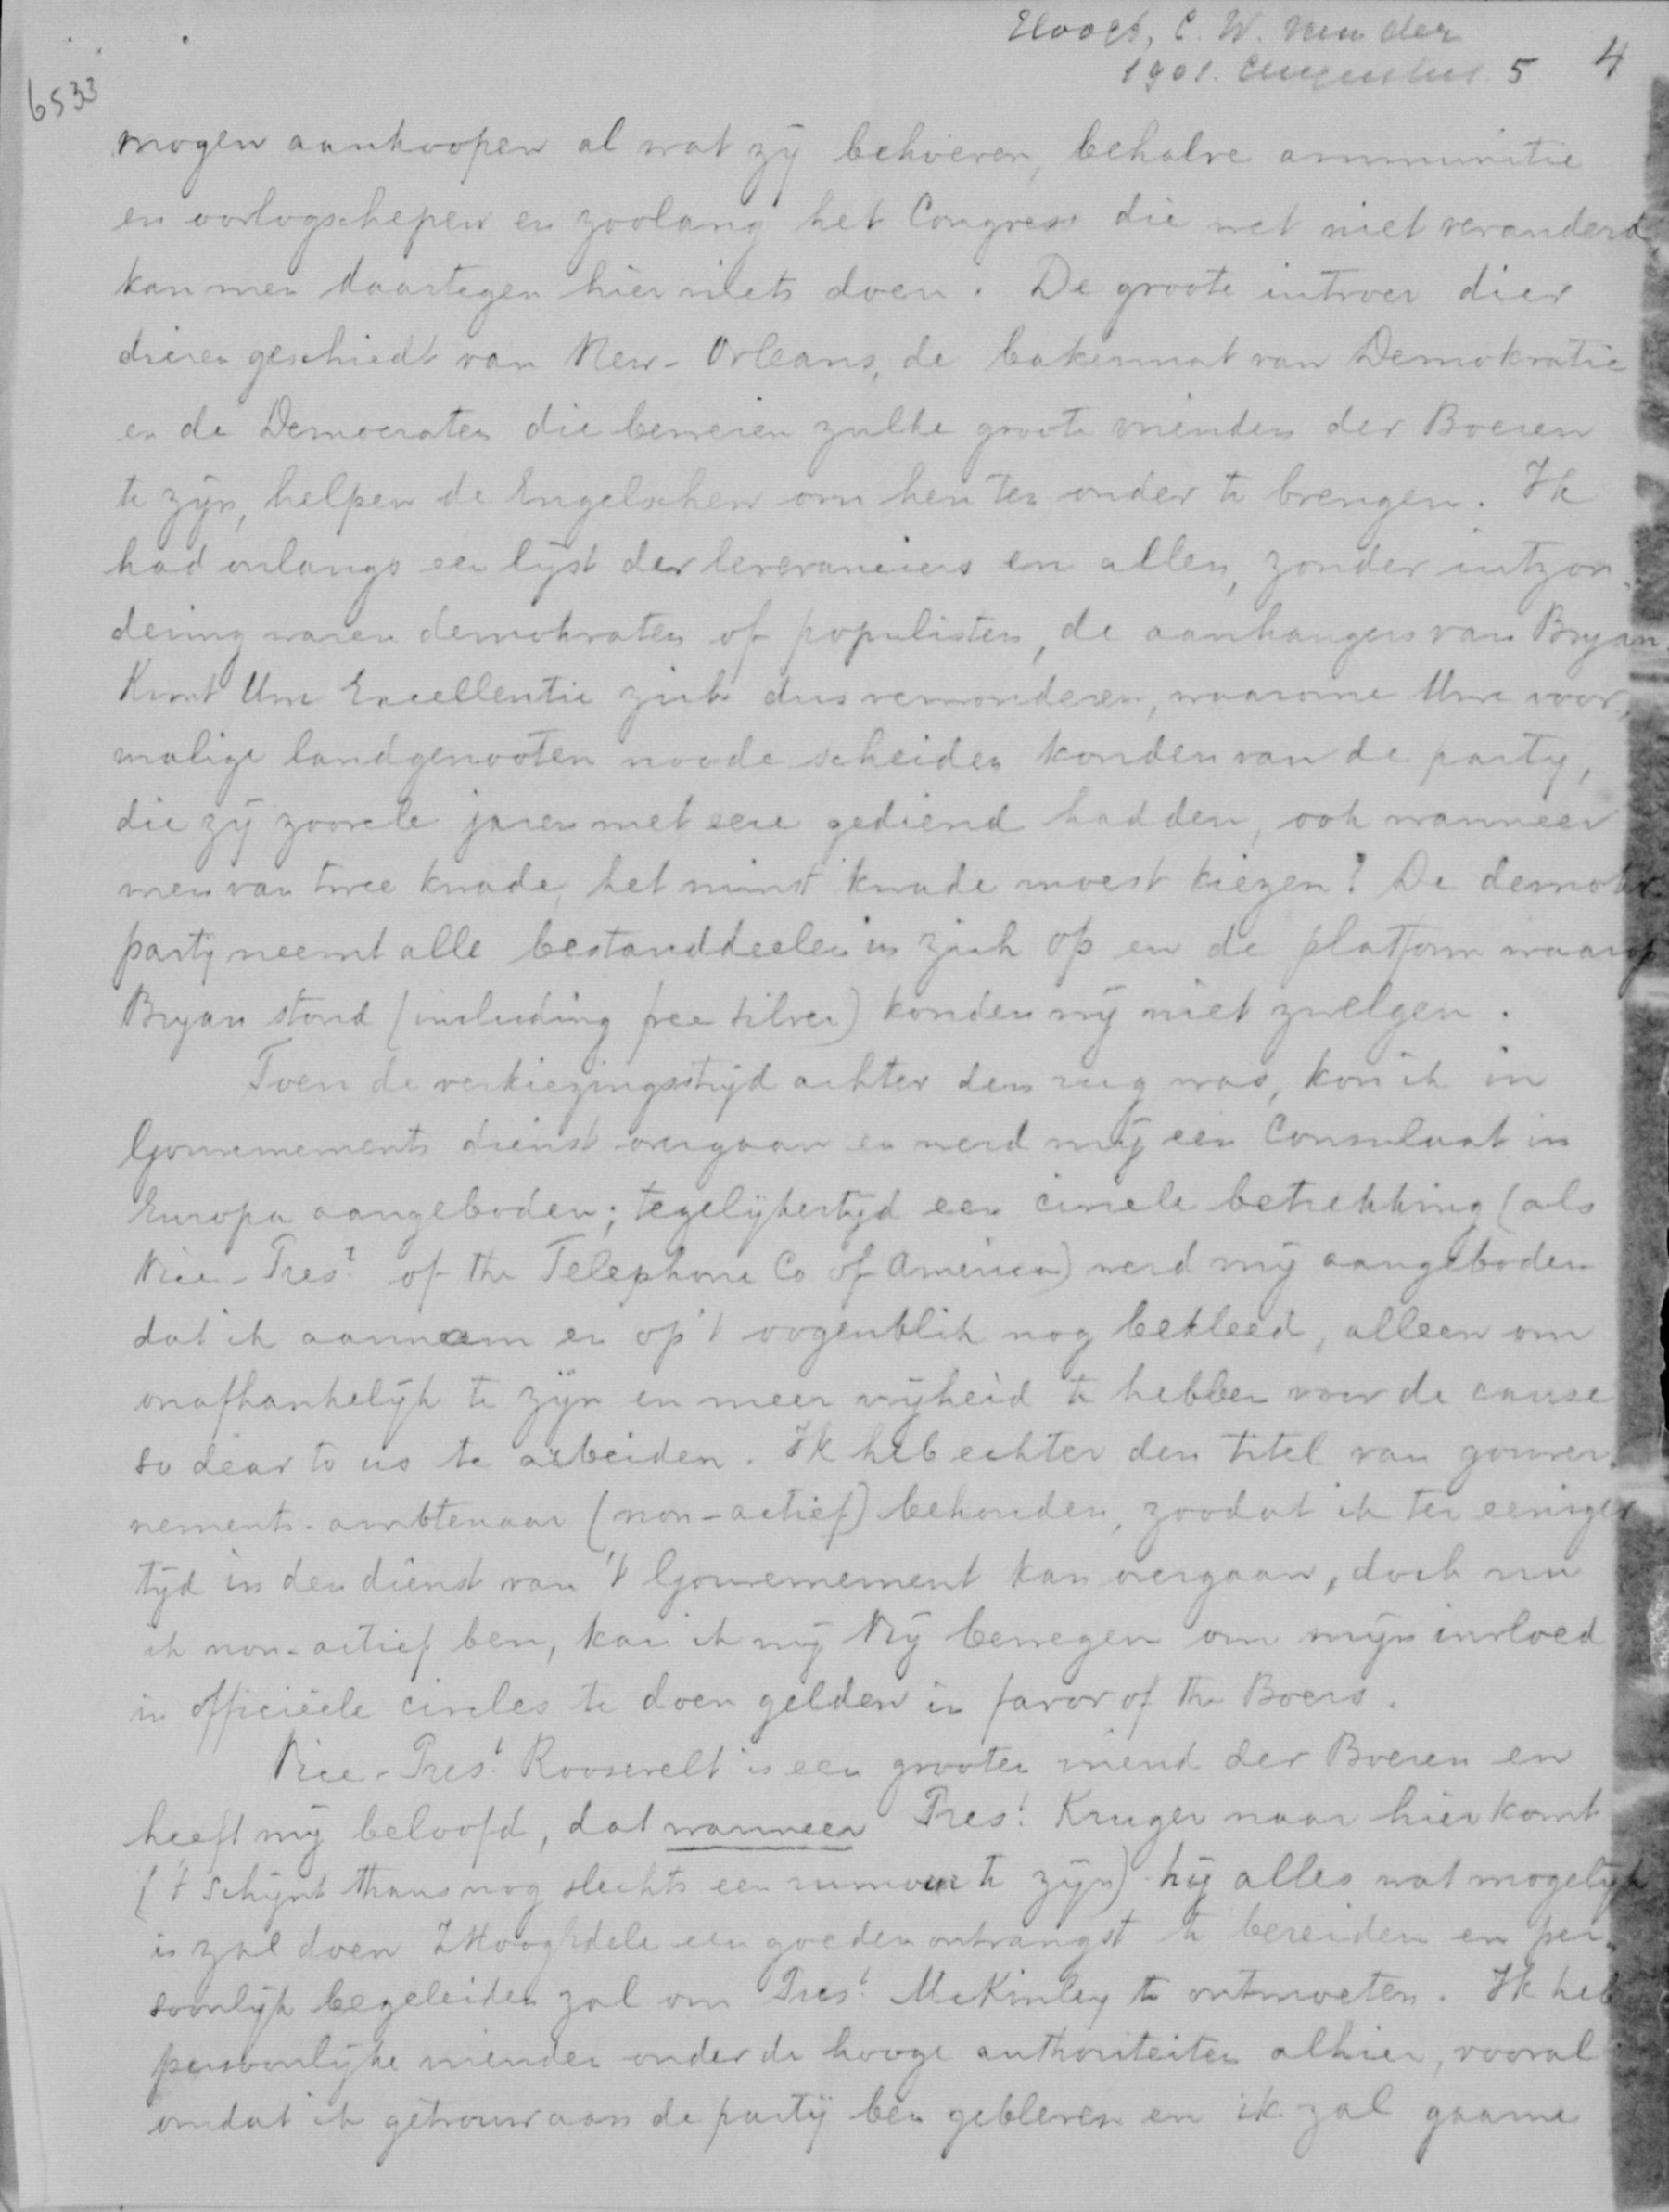 Hoogt, C. W. van der
1901. Augustus 5 4
6533
mogen aankoopen al wat zy behoeven, behalve ammunitie
en oorlogschepen en zoolang het Congress die wet niet veranderd,
kan men daartegen hier niets doen. De groote invoer dier
dieren geschiedt van New-Orleans, de bakermat van Demokratie
en de Democraten die beweren zulke groote vrienden der Boeren
te zyn, helpen de Engelschen om hen ten onder te brengen. Ik
had onlangs een lyst der leveranciers en allen, zonder uitzon-
dering waren demokraten of populisten, de aanhangers van Bryan.
Kunt Uwe Excellentie zich dus verwonderen, waarom Uwe voor-
malige landgenooten noode scheiden konden van de party,
die zy zoovele jaren met eere gediend hadden, ook wanneer
men van twee kwade, het minst kwade moest kiezen? De demokr.
party neemt alle bestanddeelen in zich op en de platform waarop
Bryan stond (including free silver) konden wy niet zwelgen.
Toen de verkiezingsstryd achter den rug was, kon ik in
Gouvernements dienst overgaan en werd my een Consulaat in
Europa aangeboden; tegelykertyd een civiele betrekking (als
Vice-Prest of the Telephone Co of America) werd my aangeboden
dat ik aannam en op 't oogenblik nog bekleed, alleen om
onafhankelyk te zyn en meer vryheid te hebben voor de cause
so dear to us te arbeiden. Ik heb echter den titel van gouver-
nements-ambtenaar (non-actief) behouden, zoodat ik ten eeniger
tyd in den dienst van 't Gouvernement kan overgaan, doch nu
ik non-actief ben, kan ik my vry bewegen om myn invloed
in officieele circles te doen gelden in favor of the Boers.
Vice-Prest Roosevelt is een grooten vriend der Boeren en
heeft my beloofd, dat wanneer Prest Kruger naar hier komt
('t schynt thans nog slechts een rumour te zyn) hy alles wat mogelyk
is zal doen ZHoogEdele een goeden ontvangst te bereiden en per-
soonlyk begeleiden zal om Prest McKinley te ontmoeten. Ik heb
persoonlyke vrienden onder de hooge authoriteiten alhier, vooral
omdat ik getrouw aan de party ben gebleven en ik zal gaarne